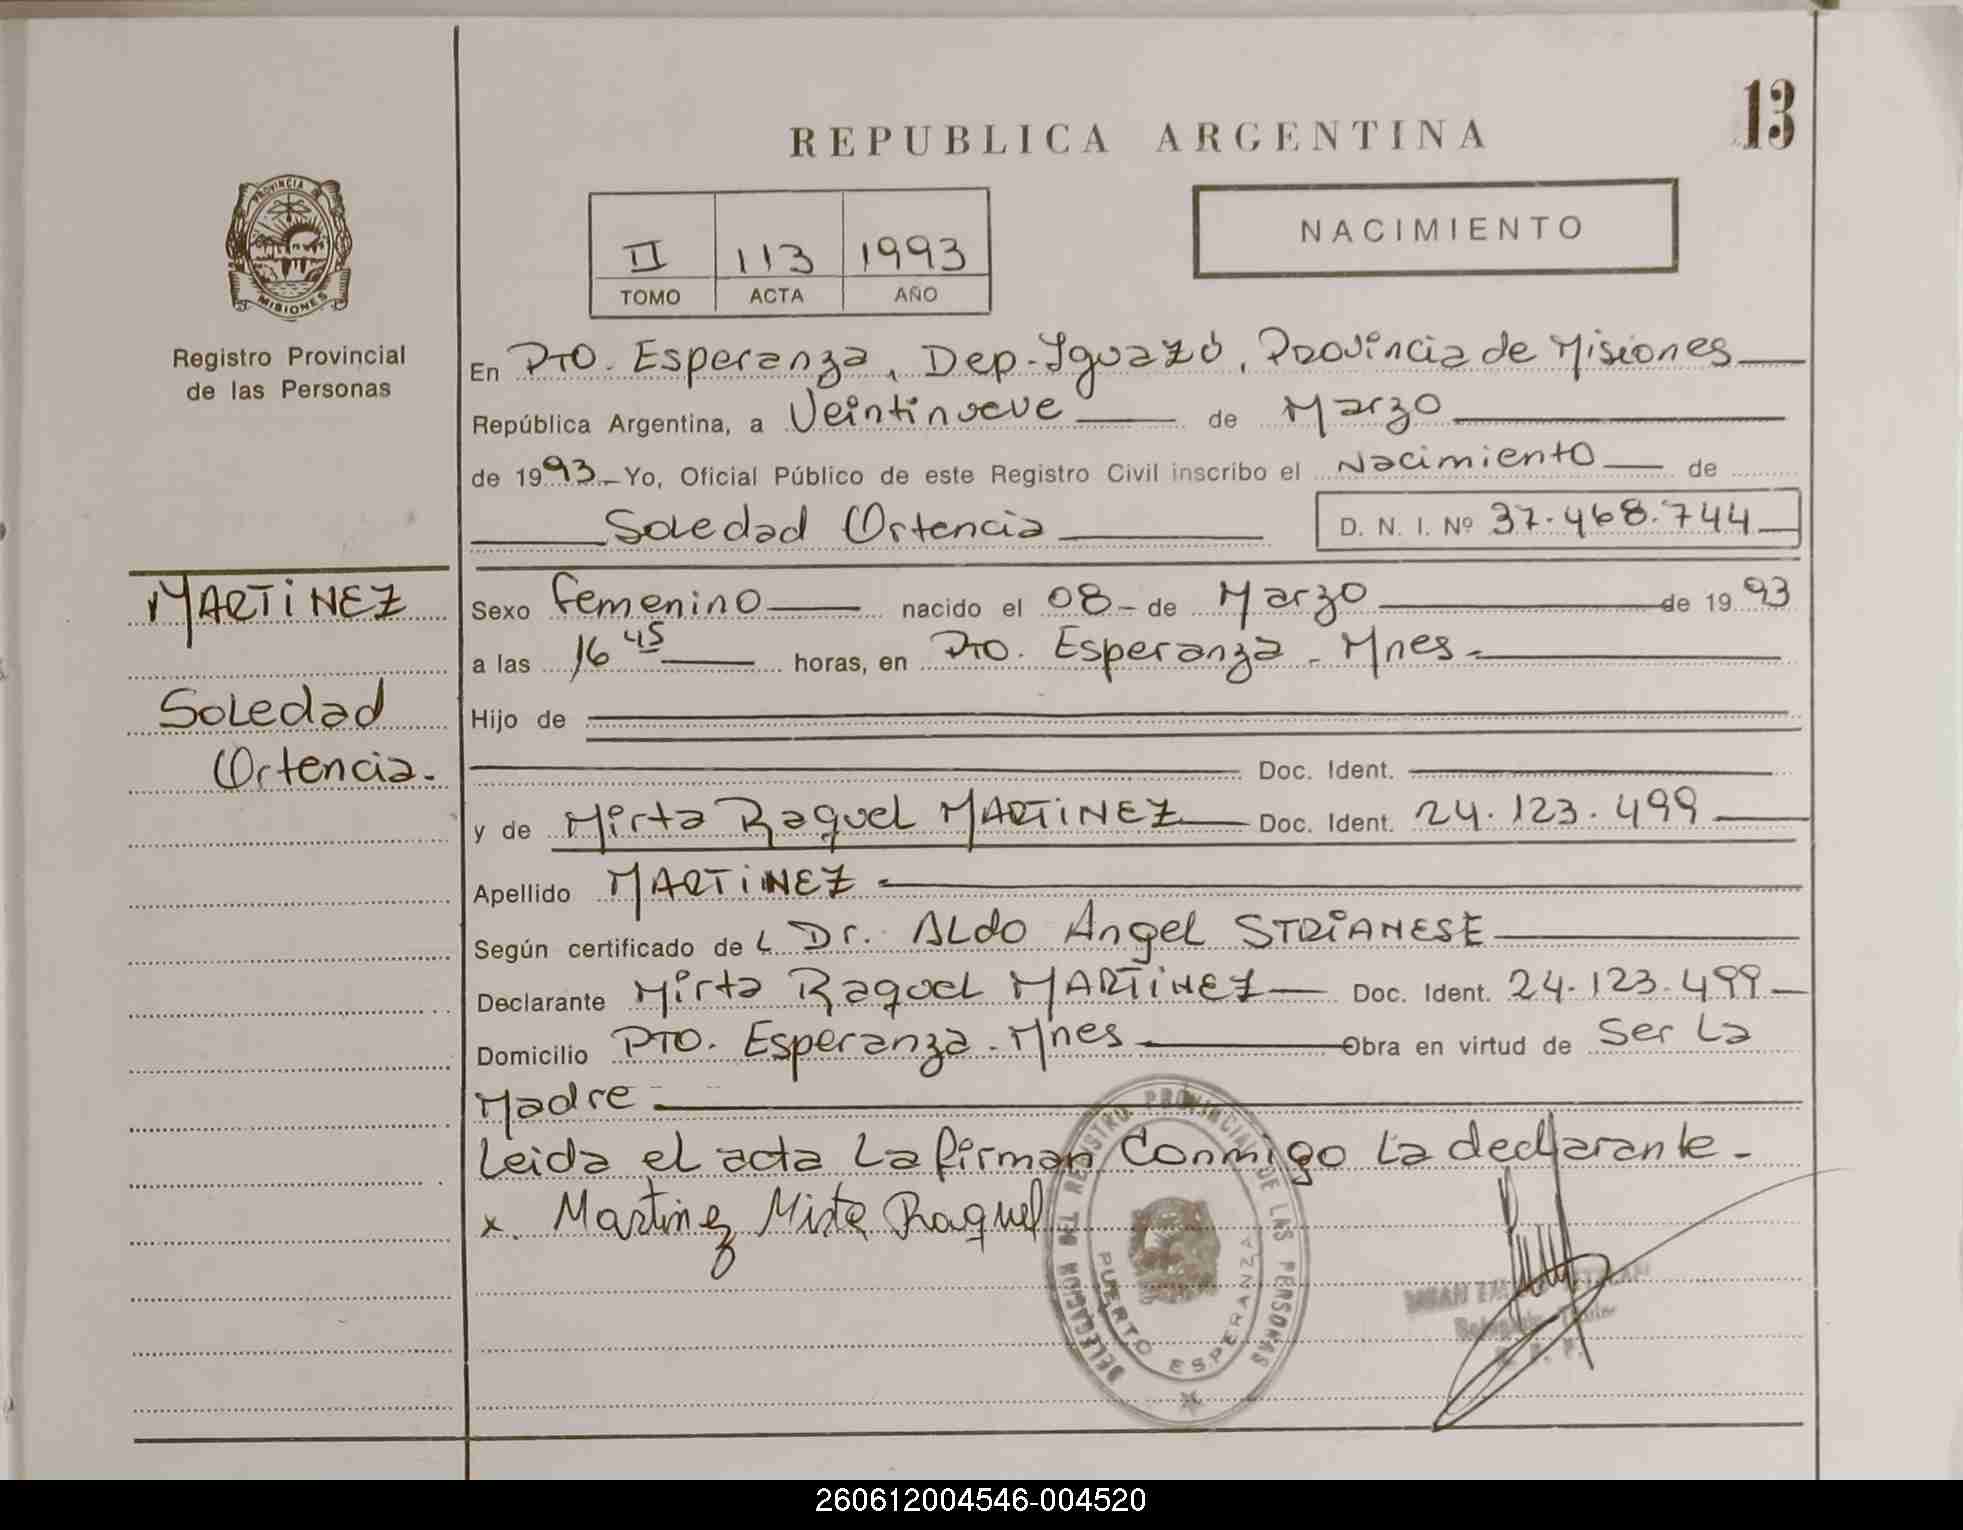 13
REPUBLICA ARGENTINA
PROVINCIA DE
MISIONES
Registro Provincial
de las Personas
II 113 1993
TOMO ACTA AÑO
NACIMIENTO
En Pto. Esperanza, Dep. Iguazú, Provincia de Misiones
República Argentina, a Veintinueve de Marzo
de 1993 Yo, Oficial Público de este Registro Civil inscribo el Nacimiento de
Soledad Ortencia D. N. I. Nº 37.468.744
MARTiNEZ
Soledad
Ortencia.
Sexo femenino nacido el 08 de Marzo de 1993
a las 16 45 horas, en Pto. Esperanza - Mnes.
Hijo de
Doc. Ident.
y de Mirta Raquel MARTiNEZ Doc. Ident. 24.123.499
Apellido MARTiNEZ
Según certificado de L Dr. Aldo Angel STRiANESE
Declarante Mirta Raquel MARTiNEZ Doc. Ident. 24.123.499
Domicilio Pto. Esperanza - Mnes Obra en virtud de Ser La
Madre
Leida el acta La firman Conmigo La declarante.
x. Martinez Mirta Raquel
DELEGACION DEL REGISTRO PROVINCIAL DE LAS PERSONAS
PUERTO ESPERANZA
260612004546-004520